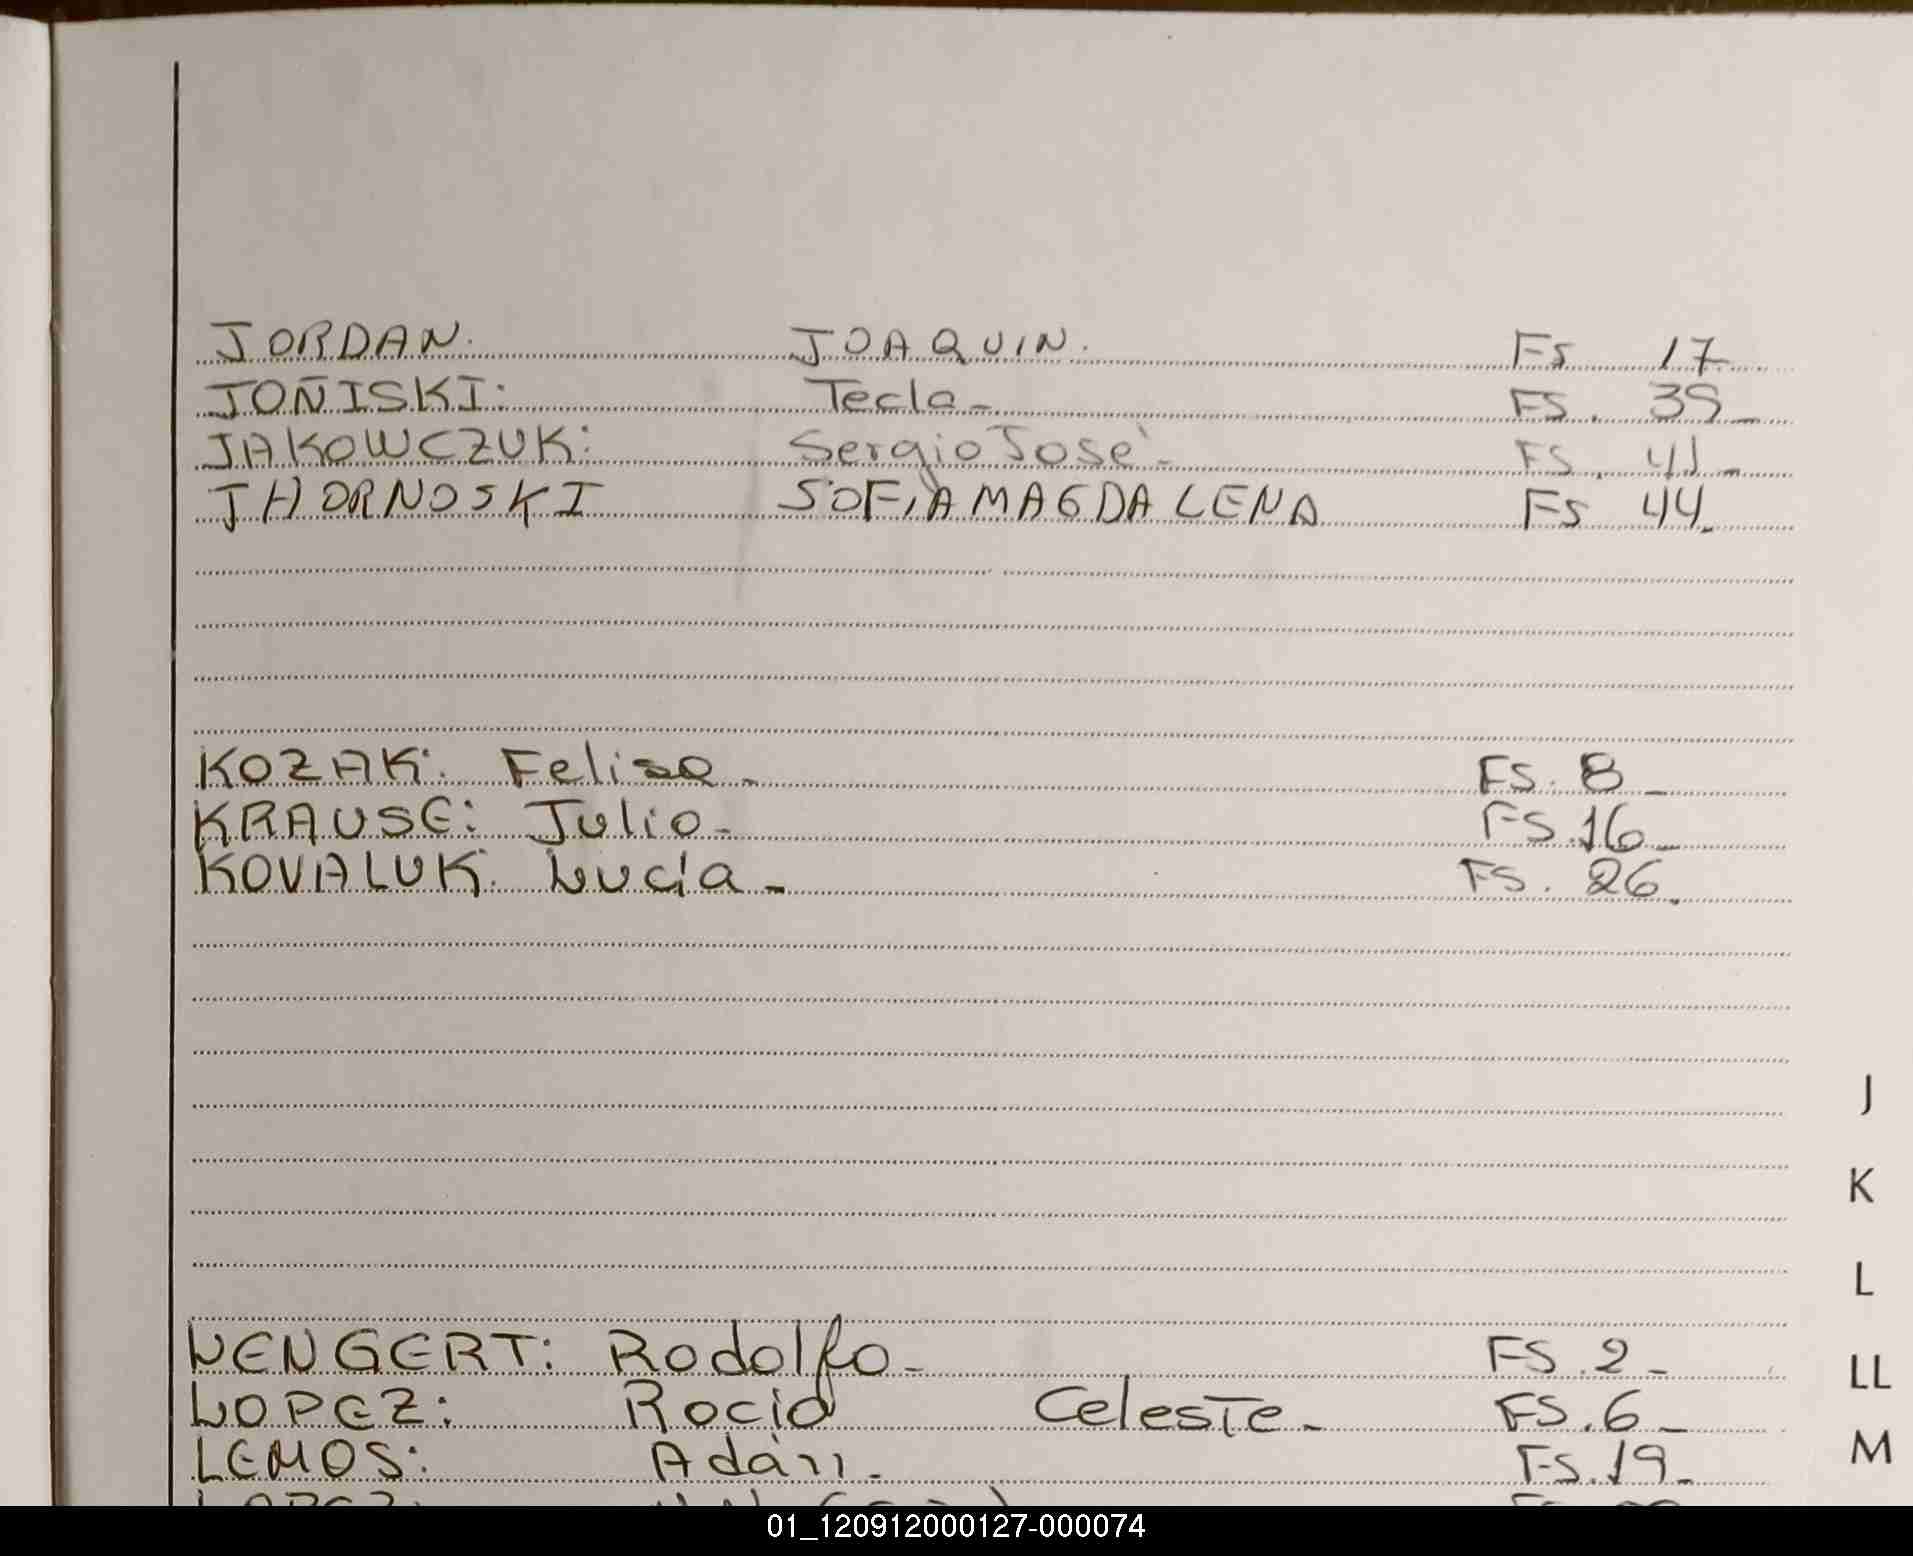 JORDAN. JOAQUIN. Fs 17
JOÑISKI: Tecla- FS. 39-
JAKOWCZUK: Sergio José- FS. 41-
JHORNOSKI SOFIA MAGDALENA Fs 44.
KOZAK: Felisa- FS. 8-
KRAUSE: Julio- FS. 16-
KOVALUK: Lucia- FS. 26.
J
K
L
LENGERT: Rodolfo- FS. 2-
LL
LOPEZ: Rocio Celeste- FS. 6-
M
LEMOS: Adán- FS. 19-
LOPEZ:
01_120912000127-000074